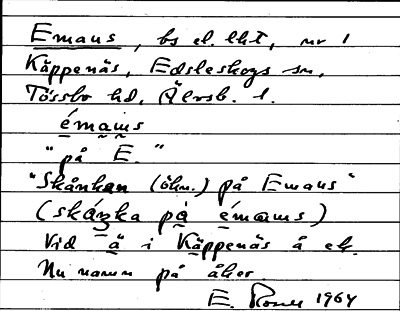 Emaus, bs el. lht, nr 1
Käppenäs, Edsleskogs sn,
Tössbo hd, Älvsb. l.
émaus
"på E."
"Skånkan (ökn.) på Emaus"
(skáŋka på émaus)
Vid å i Käppenäs å ek.
Nu namn på åker.
E. 1964